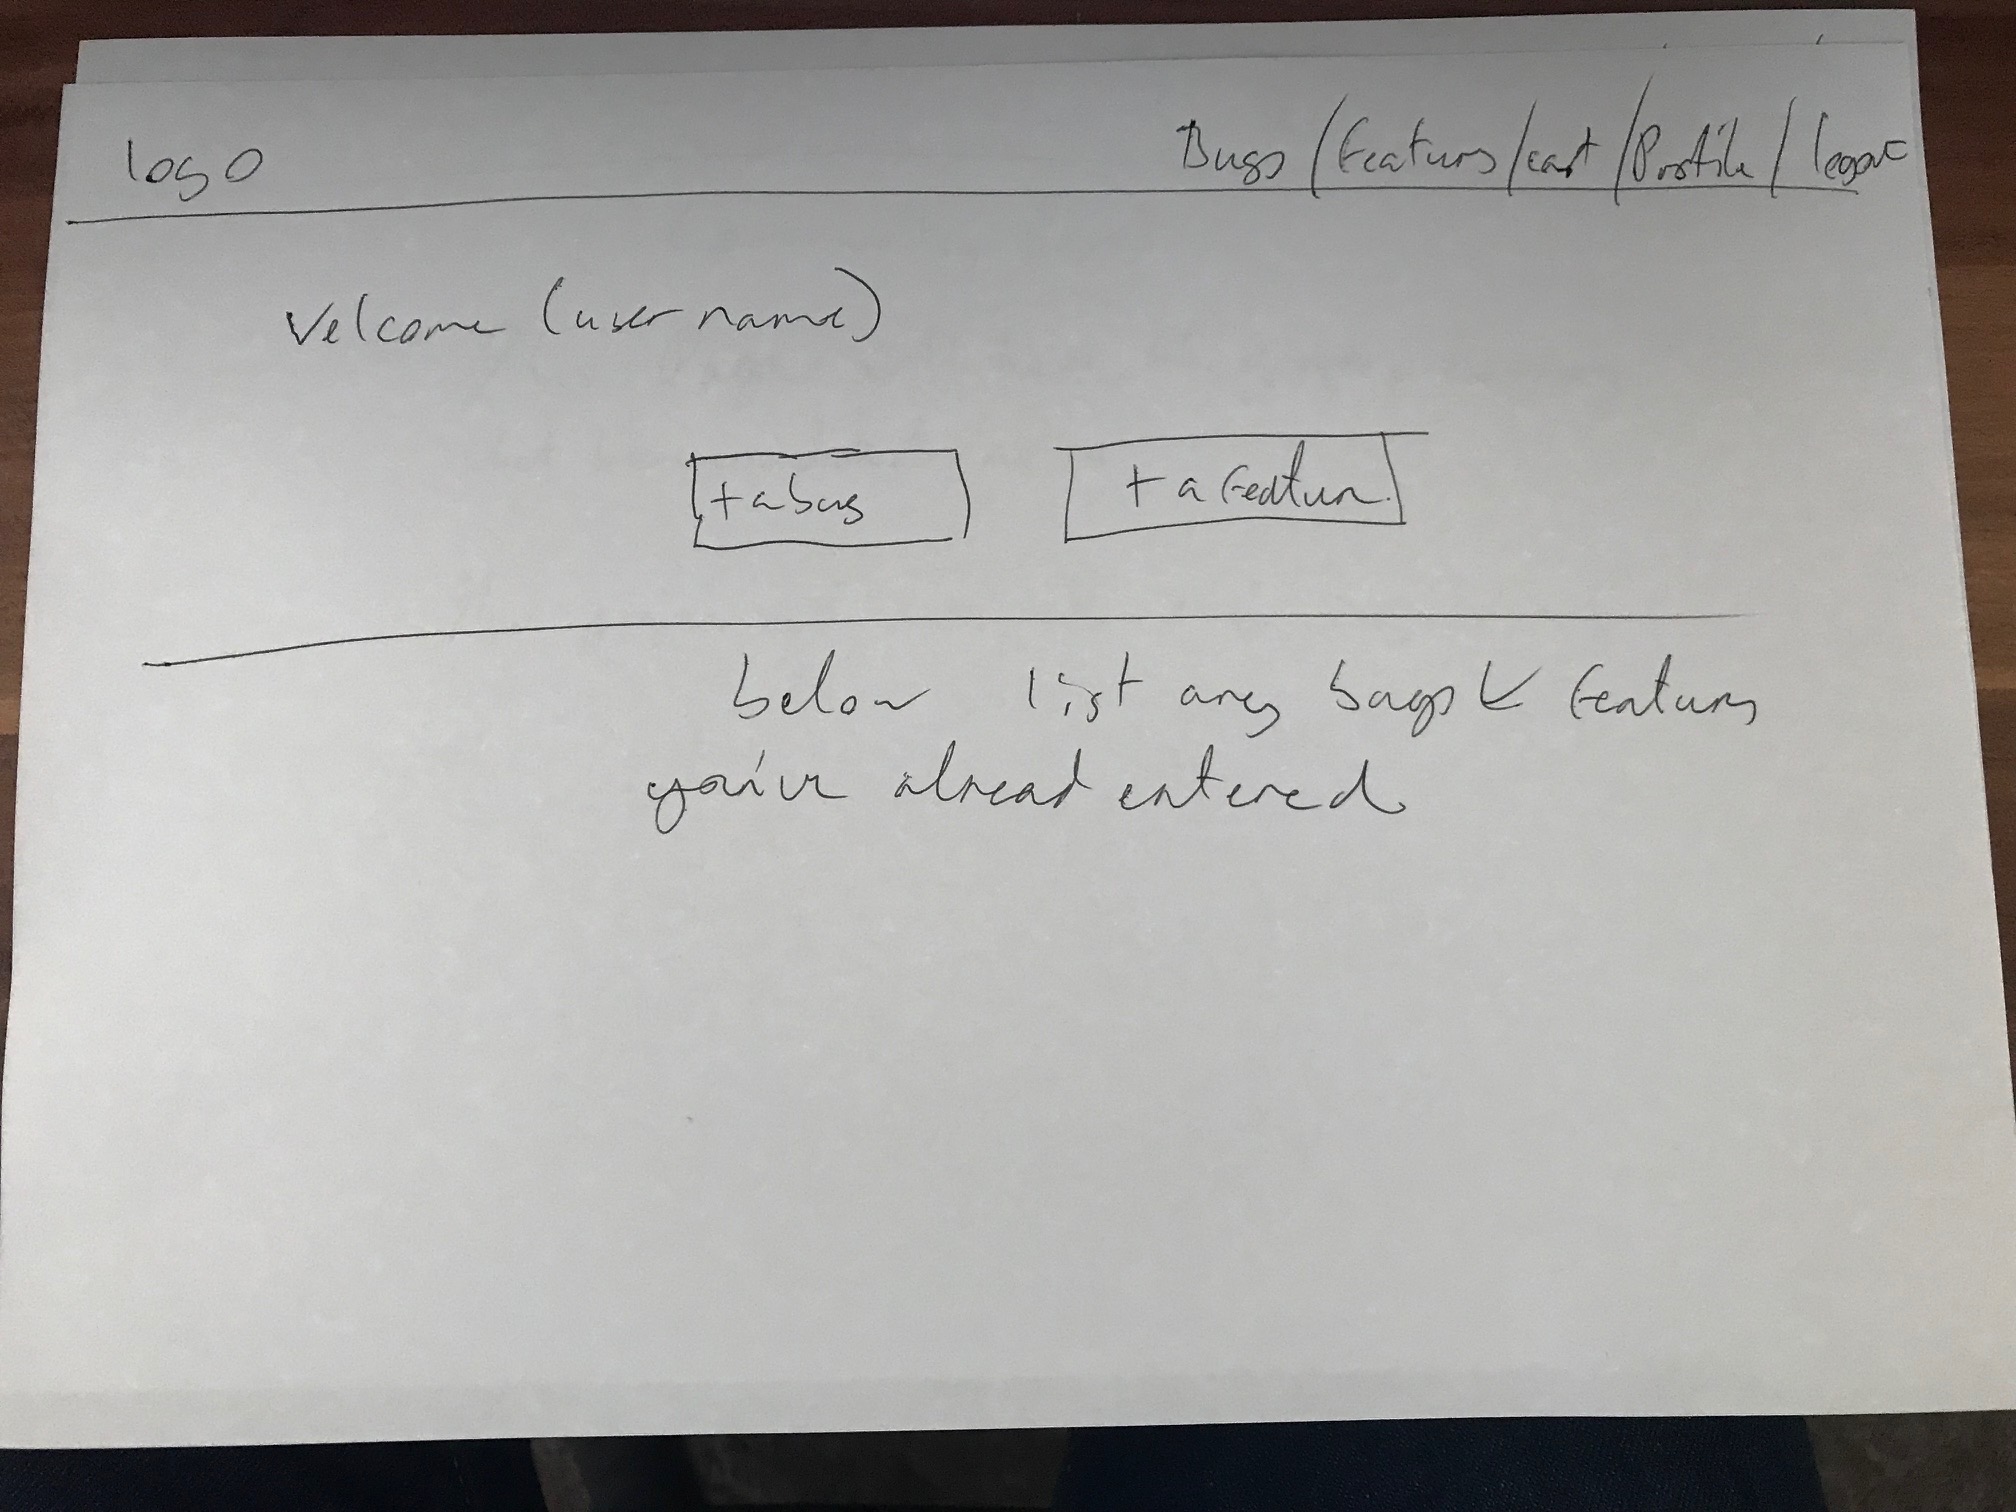 logo Bugs / Features / cart / Profile / logout
Welcome (user name)
+ a bug + a feature
below list any bugs & features
you've alread entered.